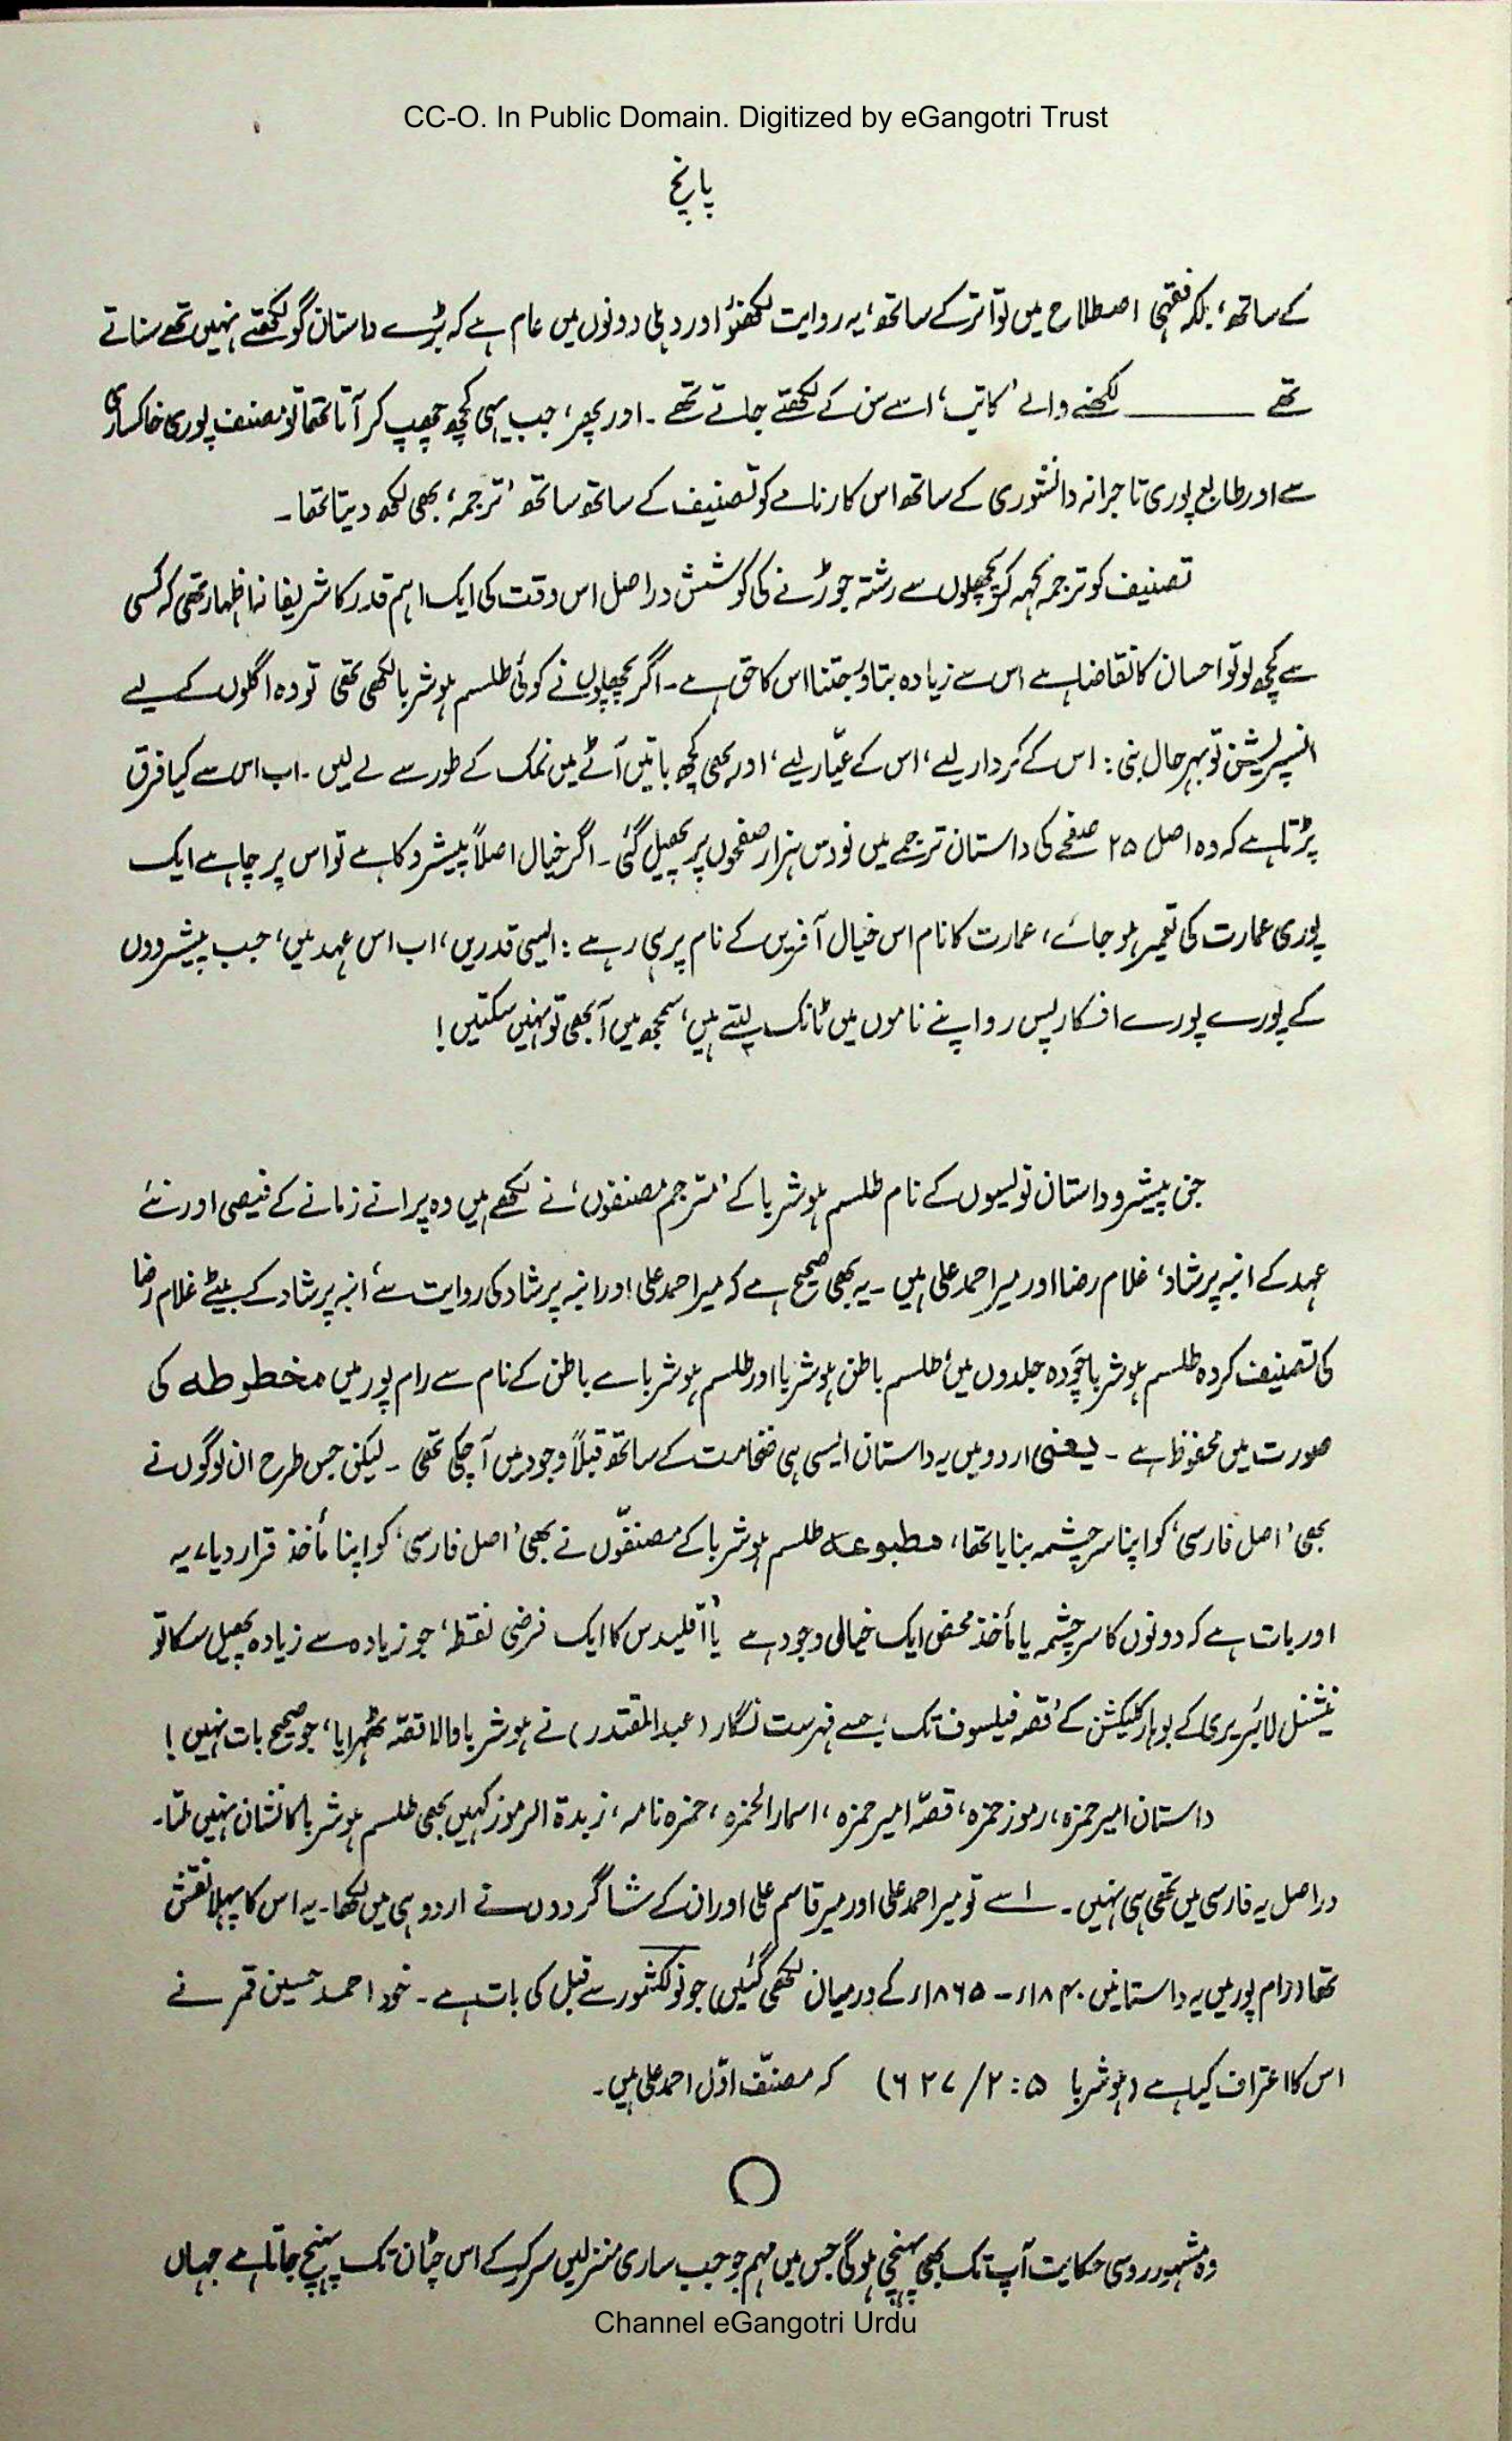 CC-O. In Public Domain. Digitized by eGangotri Trust
پانچ
کے ساتھ، بلکہ فقہی اصطلاح میں تواتر کے ساتھ، یہ روایت لکھنؤ اور دہلی دونوں میں عام ہے کہ بڑے داستان گو لکھتے نہیں تھے سناتے
تھے ــــــــ لکھنے والے 'کاتب' اسے سن کے لکھتے جاتے تھے ۔ اور پھر، جب یہی کچھ چھپ کر آتا تھا تو مصنف پوری خاکساری
سے اور طابع پوری تاجرانہ دانشوری کے ساتھ اس کارنامے کو تصنیف کے ساتھ ساتھ 'ترجمہ' بھی لکھ دیتا تھا ۔
تصنیف کو ترجمہ کہہ کر پچھلوں سے رشتہ جوڑنے کی کوشش دراصل اس وقت کی ایک اہم قدر کا شریفانہ اظہار تھی کہ کسی
سے کچھ لو تو احسان کا تقاضا ہے اس سے زیادہ بتاؤ جتنا اس کا حق ہے ۔ اگر پچھلوں نے کوئی طلسم ہوشربا لکھی تھی تو وہ اگلوں کے لیے
انسپریشن تو بہرحال بنی : اس کے کردار لیے، اس کے عیّار لیے، اور بھی کچھ باتیں آٹے میں نمک کے طور سے لے لیں ۔ اب اس سے کیا فرق
پڑتا ہے کہ وہ اصل ۲۵ صفحے کی داستان ترجمے میں نو دس ہزار صفحوں پر پھیل گئی ۔ اگر خیال اصلاً پیشرو کا ہے تو اس پر چاہے ایک
پوری عمارت کی تعمیر ہو جائے، عمارت کا نام اس خیال آفریں کے نام پر ہی رہے : ایسی قدریں، اب اس عہد میں، جب پیشرووں
کے پورے پورے افکار پس رو اپنے ناموں میں ٹانک لیتے ہیں، سمجھ میں آ بھی تو نہیں سکتیں !
جن پیشرو داستان نویسوں کے نام طلسم ہوشربا کے 'مترجم مصنفوں' نے لکھے ہیں وہ پرانے زمانے کے فیضی اور نئے
عہد کے انبہ پرشاد، غلام رضا اور میر احمد علی ہیں ۔ یہ بھی صحیح ہے کہ میر احمد علی اور انبہ پرشاد کی روایت سے، انبہ پرشاد کے بیٹے غلام رضا
کی تصنیف کردہ طلسم ہوشربا چودہ جلدوں میں، طلسم باطن ہوشربا اور طلسم ہوشربائے باطن کے نام سے رام پور میں مخطوطہ کی
صورت میں محفوظ ہے ۔ یعنی اردو میں یہ داستان ایسی ہی ضخامت کے ساتھ قبلاً وجود میں آ چکی تھی ۔ لیکن جس طرح ان لوگوں نے
بھی 'اصل فارسی' کو اپنا سرچشمہ بنایا تھا، مطبوعہ طلسم ہوشربا کے مصنفّوں نے بھی 'اصل فارسی' کو اپنا مأخذ قرار دیا، یہ
اور بات ہے کہ دونوں کا سرچشمہ یا مأخذ محض ایک خیالی وجود ہے یا 'اقلیدس کا ایک فرضی نقطہ' جو زیادہ سے زیادہ پھیل سکا تو
نیشنل لائبریری کے بوہار کلیکشن کے 'قصہ فیلسوف تک' جسے فہرست نگار (عبدالمقتدر) نے ہوشربا والا قصّہ ٹھہرایا، جو صحیح بات نہیں !
داستان امیر حمزہ، رموز حمزہ، قصّہ امیر حمزہ، اسمارالحمزہ، حمزہ نامہ، زبدۃ الرموز کہیں بھی طلسم ہوشربا کا نشان نہیں ملتا ۔
دراصل یہ فارسی میں تھی ہی نہیں ۔ اسے تو میر احمد علی اور میر قاسم علی اور ان کے شاگردوں نے اردو ہی میں لکھا ۔ یہ اس کا پہلا نقش
تھا (رام پور میں یہ داستانیں ۱۸۴۰ء ۔ ۱۸۶۵ء کے درمیان لکھی گئیں) جو نولکشور سے قبل کی بات ہے ۔ خود احمد حسین قمر نے
اس کا اعتراف کیا ہے (ہوشربا ۵ : ۲ / ۶۲۷) کہ مصنّف اوّل احمد علی ہیں ۔
وہ مشہور روسی حکایت آپ تک بھی پہنچی ہو گی جس میں مہم جو جب ساری منزلیں سر کر کے اس چٹان تک پہنچ جاتا ہے جہاں
Channel eGangotri Urdu